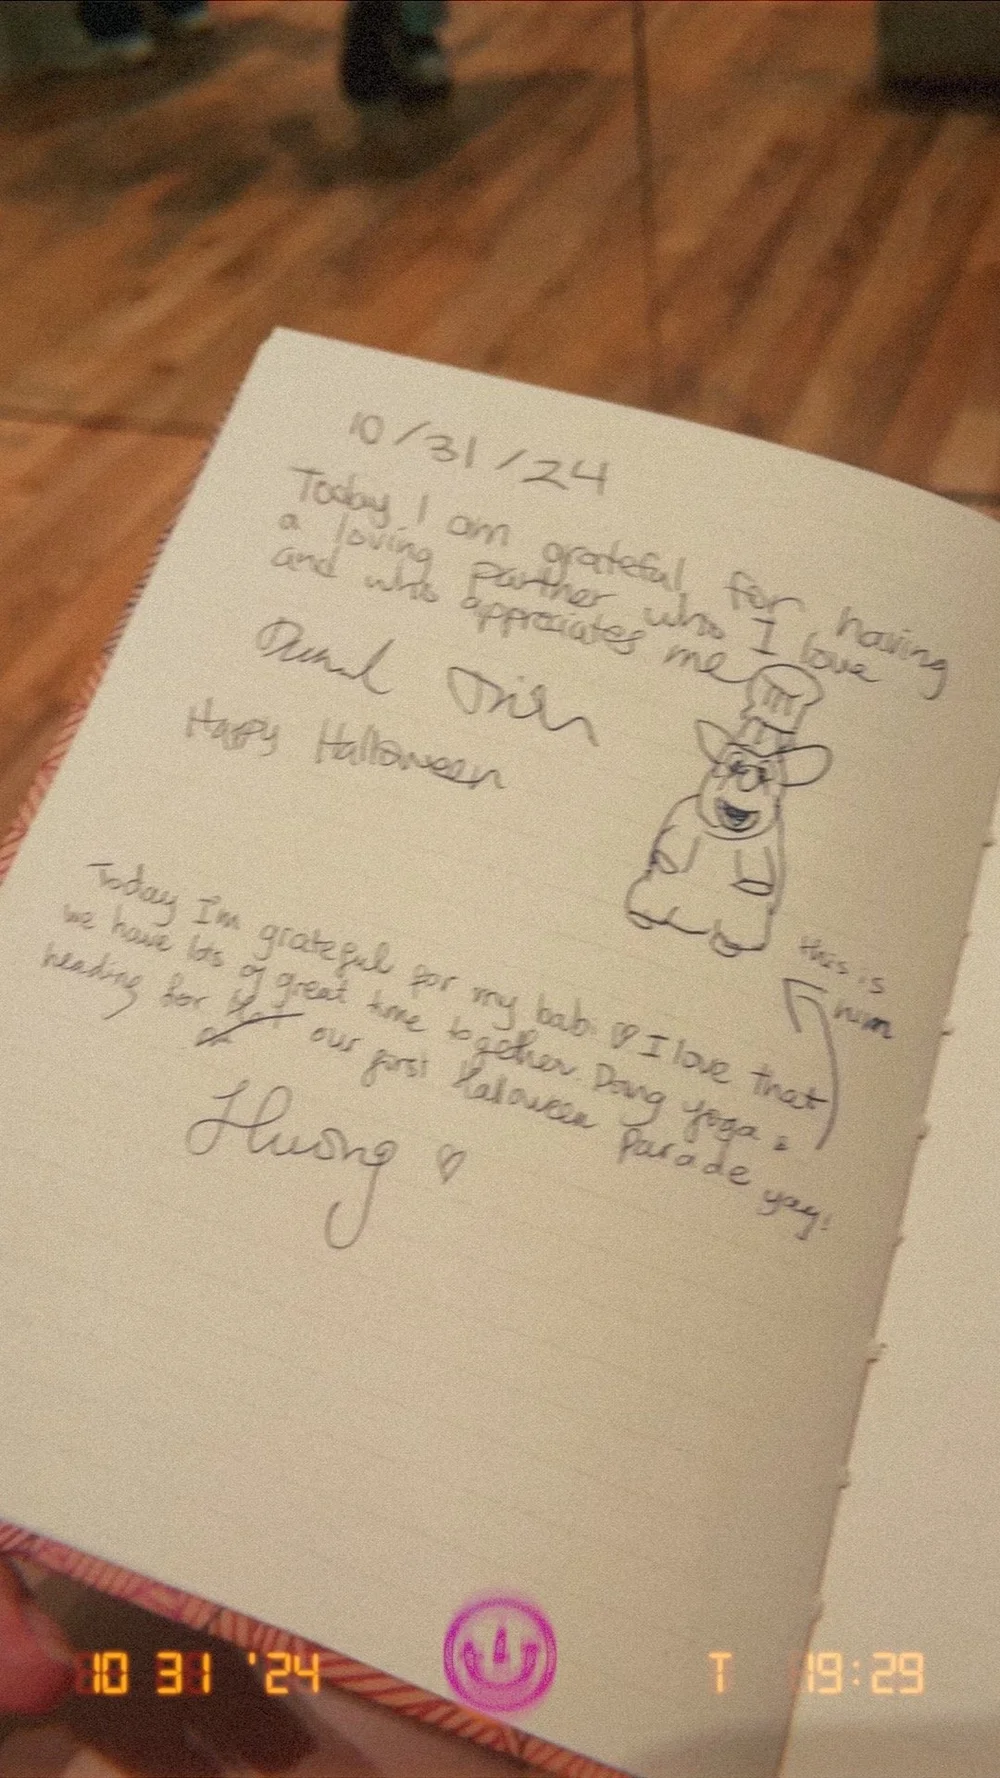 10/31/24
Today I am grateful for having
a loving partner who I love
and who appreciates me
Happy Halloween
this is
him
Today I'm grateful for my babi I love that
we have lots of great time together. Doing yoga &
heading for our first Halloween Parade yay!
Huong
10 31 '24
T 19:29